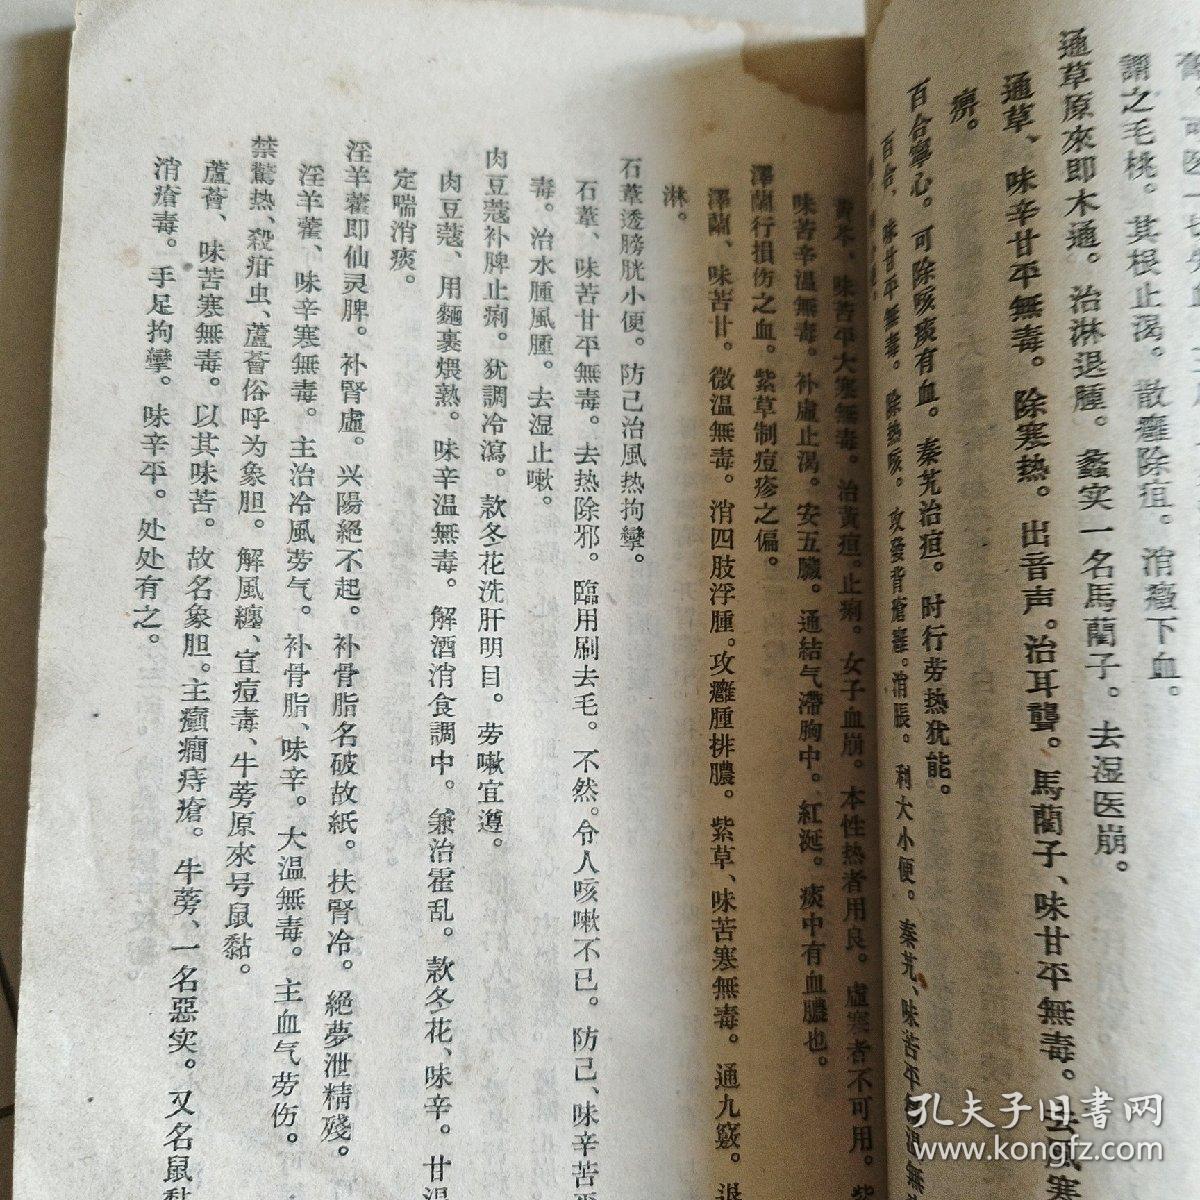 謂之毛桃。其根止渴。散癰除疽。消癥下血。
通草原來即木通。治淋退腫。蠡实一名馬藺子。去湿医崩。
通草、味辛甘平無毒。除寒热。出音声。治耳聾。馬藺子、味甘平無毒。去風寒
痹。
百合寧心。可除咳痰有血。秦艽治疸。时行劳热犹能。
百合、味甘平無毒。除热咳。攻發背瘡癰。消脹。利大小便。秦艽、味苦平
味苦平大寒無毒。治黃疸。止痢。女子血崩。本性热者用良。虛寒者不可用。紫
味苦辛温無毒。补虛止渴。安五臟。通結气滯胸中。紅涎。痰中有血膿也。
澤蘭行損伤之血。紫草制痘疹之偏。
澤蘭、味苦甘。微温無毒。消四肢浮腫。攻癰腫排膿。紫草、味苦寒無毒。通九竅。退
淋。
石葦透膀胱小便。防己治風热拘攣。
石葦、味苦甘平無毒。去热除邪。臨用刷去毛。不然。令人咳嗽不已。防己、味辛苦平
毒。治水腫風腫。去湿止嗽。
肉豆蔻补脾止痢。犹調冷瀉。款冬花洗肝明目。劳嗽宜遵。
肉豆蔻、用麵裹煨熟。味辛温無毒。解酒消食調中。兼治霍乱。款冬花、味辛。甘温
定喘消痰。
淫羊藿即仙灵脾。补腎虛。兴陽絕不起。补骨脂名破故紙。扶腎冷。絕夢泄精殘。
淫羊藿、味辛寒無毒。主治冷風劳气。补骨脂、味辛。大温無毒。主血气劳伤。
禁驚热、殺疳虫、蘆薈俗呼为象胆。解風纏、宣痘毒、牛蒡原來号鼠黏。
蘆薈、味苦寒無毒。以其味苦。故名象胆。主癲癇痔瘡。牛蒡、一名惡实。又名鼠黏
消瘡毒。手足拘攣。味辛平。处处有之。
孔夫子旧書网
www.kongfz.com